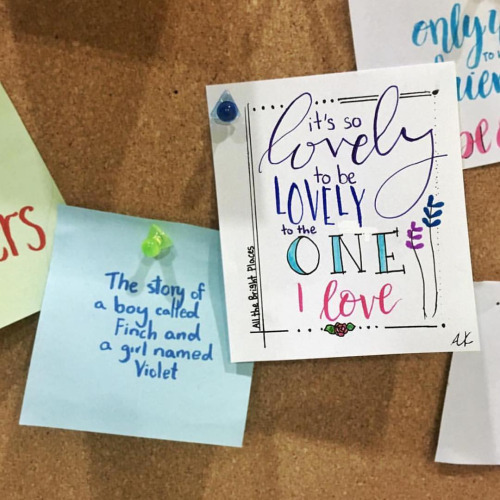 it's so
lovely
to be
LOVELY
to the
ONE
I love
All the Bright Places
ALK
The story of
a boy called
Finch and
a girl named
Violet
only
to